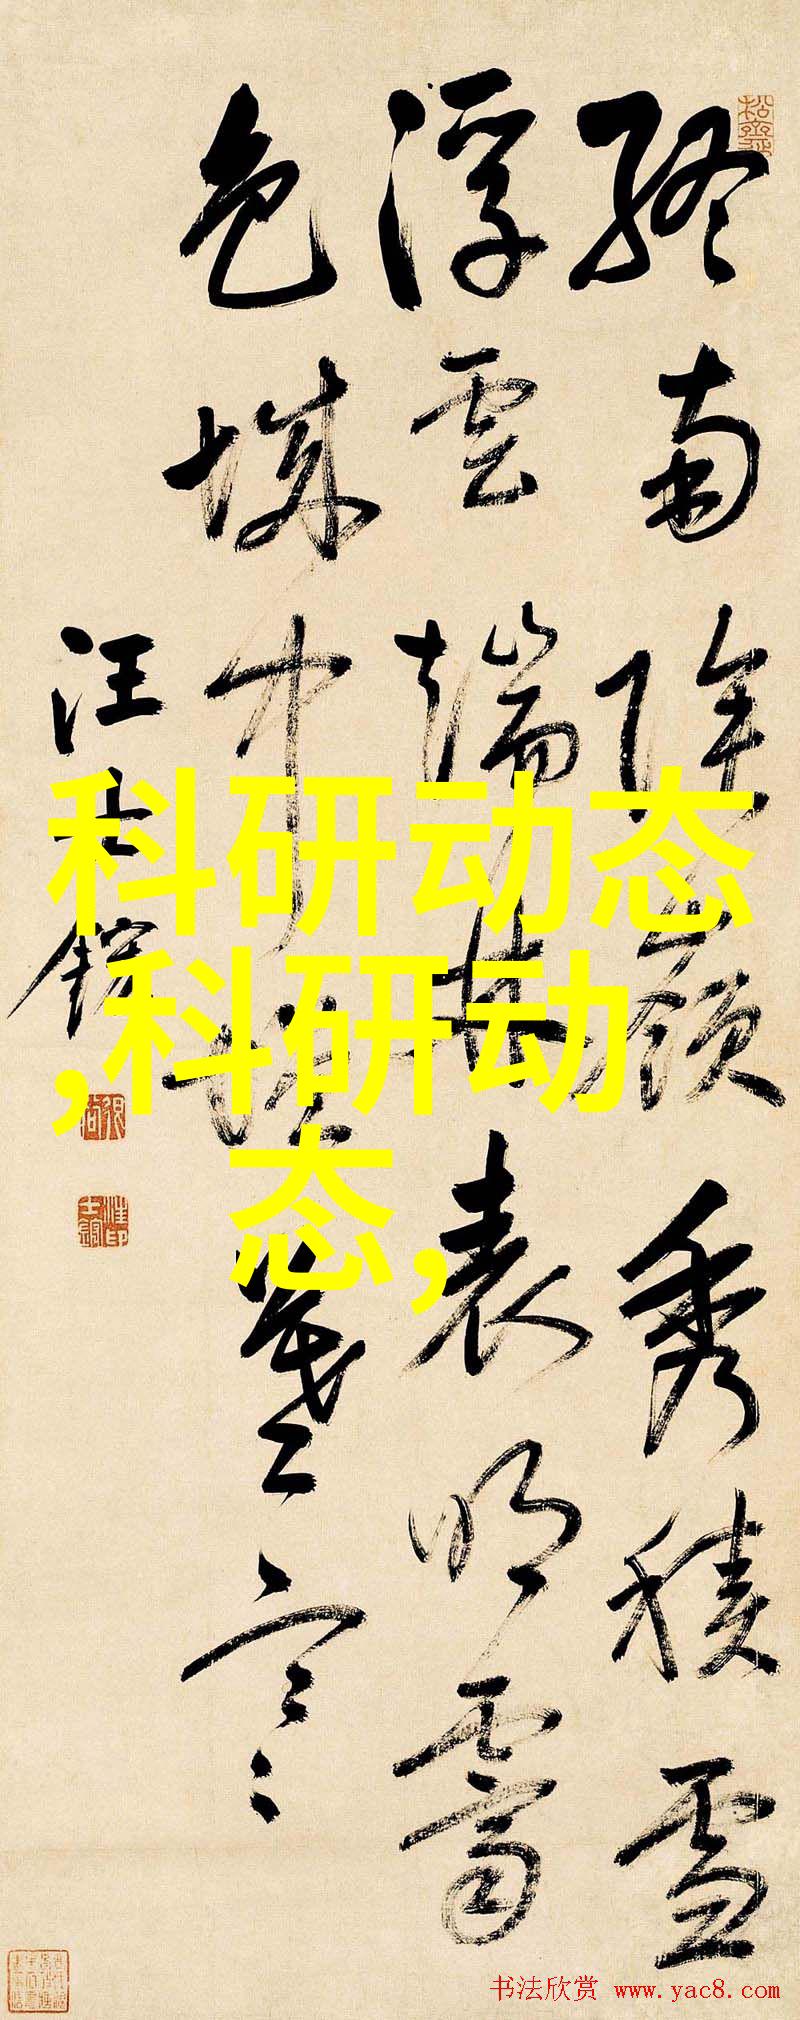 終南陰嶺秀積雪
浮雲端林表明霽
色城中增暮寒
汪士鋐
科研动态
,科研动
态,
书法欣赏 www.yac8.com